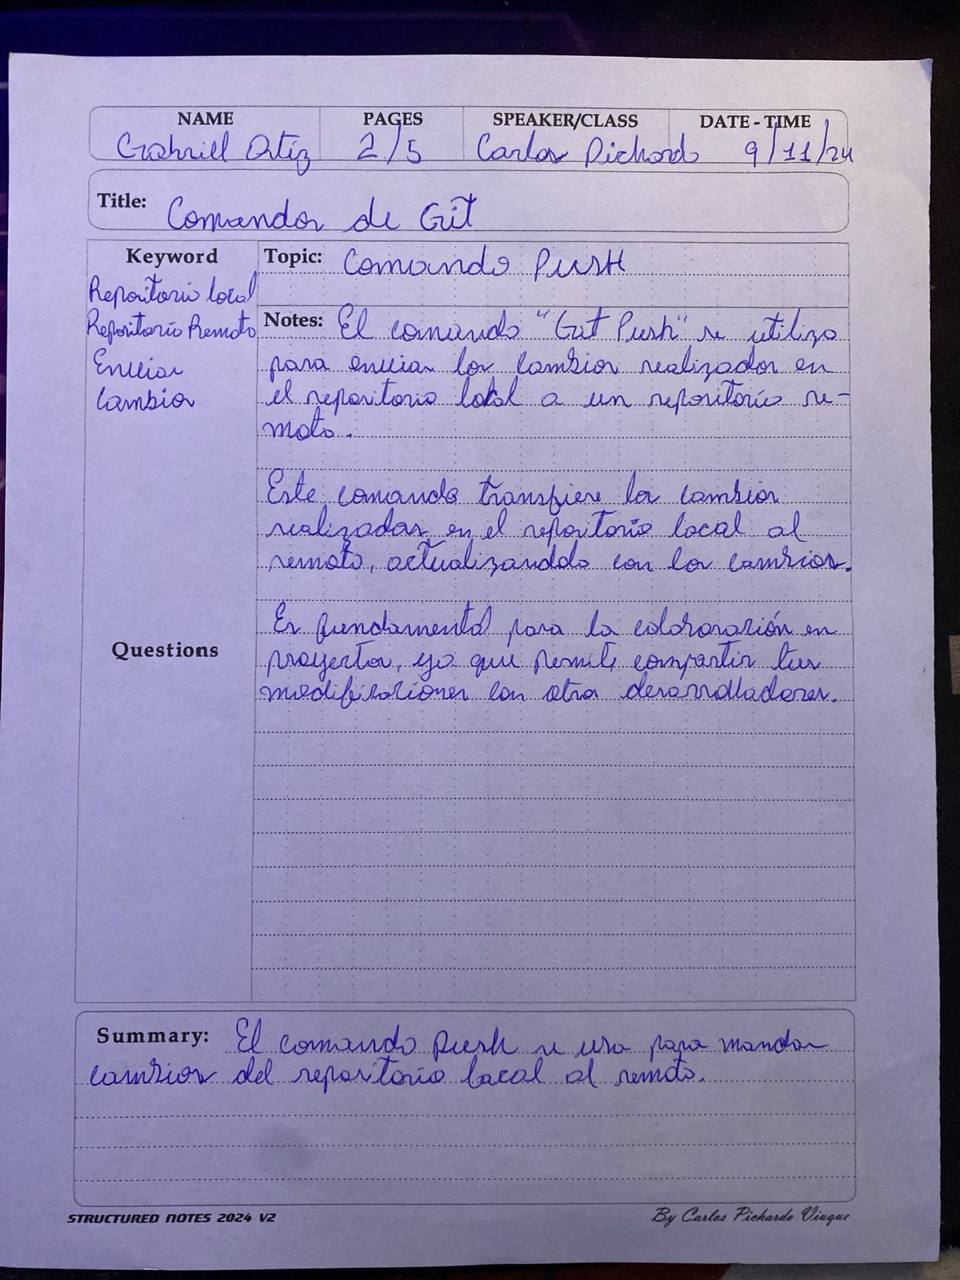 NAME PAGES SPEAKER/CLASS DATE - TIME
Gabriell Ortiz 2/5 Carlos Pichardo 9/11/24
Title: Comandos de Git
Keyword
Repositorio local
Repositorio Remoto
Enviar
Cambios
Topic: Comando Push
Notes: El comando "Git Push" se utiliza
para enviar los cambios realizados en
el repositorio local a un repositorio re-
moto.
Este comando transfiere los cambios
realizados en el repositorio local al
remoto, actualizanddo con los cambios.
Questions
Es fundamental para la colaboración en
proyectos, ya que permite compartir tus
modificaciones con otros desarrolladores.
Summary: El comando push se usa para mandar
cambios del repositorio local al remoto.
STRUCTURED NOTES 2024 V2
By Carlos Pichardo Viuque